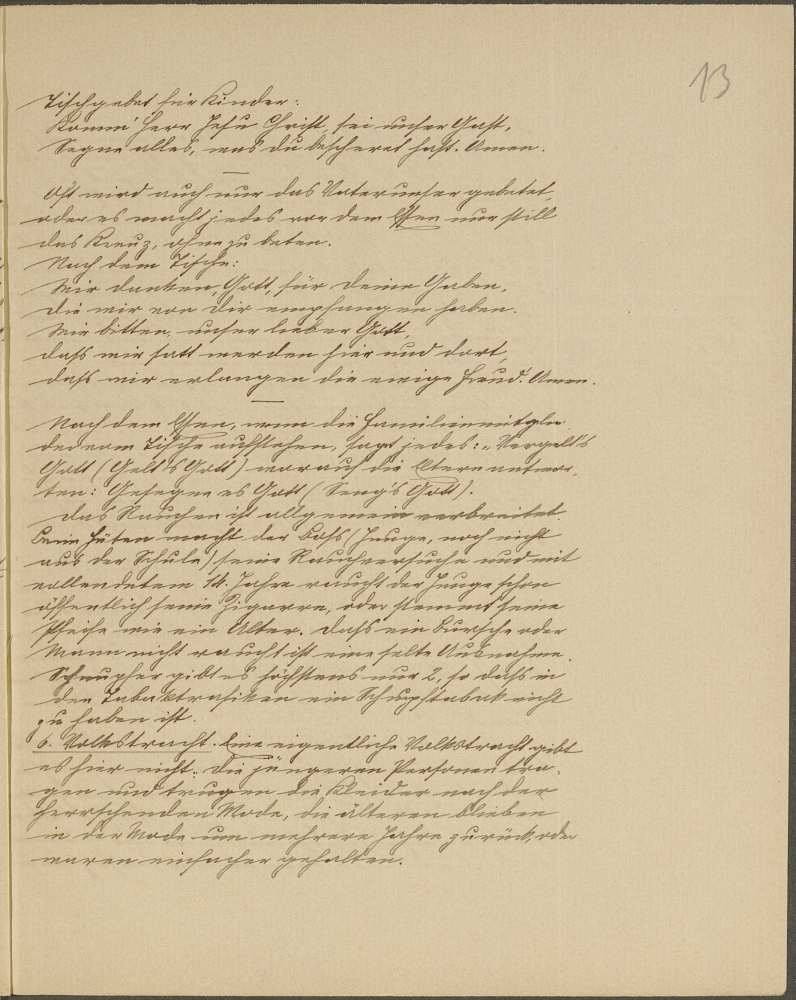 13
Tischgebet für Kinder:
Komm' Herr Jesu Christ, sei unser Gast,
Segne alles, was du bescheret hast. Amen.
Oft wird auch nur das Vaterunser gebetet,
oder es macht jedes vor dem Essen nur still
das Kreuz, ohne zu beten.
Nach dem Tische:
Wir danken, Gott, für deine Gaben,
die wir von dir empfangen haben.
Wir bitten, unser lieber Gott,
dass wir satt werden hier und dort,
dass wir erlangen die ewige Freud. Amen.
Nach dem Essen, wenn die Familienmitglie
der vom Tische aufstehen, sagt jedes: „Vergelt's
Gott (Gelt's Gott) worauf die Eltern antwor-
ten: Gesegne es Gott (Seng's Gott).
Das Rauchen ist allgemein verbreitet.
Beim Hüten macht der (Junge, noch nicht
aus der Schule) seine Rauchversuche und mit
vollendetem 14. Jahre raucht der Junge schon
öffentlich seine Zigarre, oder stemmt seine
Pfeife wie ein Alter. Dass ein Bursche oder
Mann nicht raucht ist eine selte Ausnahme.
Schnupfer gibt es höchstens nur 2, so dass in
den Tabaktrafiken ein Schnupftabak nicht
zu haben ist.
6. Volkstracht. Eine eigentliche Volkstracht gibt
es hier nicht. Die jüngeren Personen tra-
gen und trugen die Kleider nach der
herrschenden Mode, die älteren blieben
in der Mode um mehrere Jahre zurück, oder
waren einfacher gehalten.